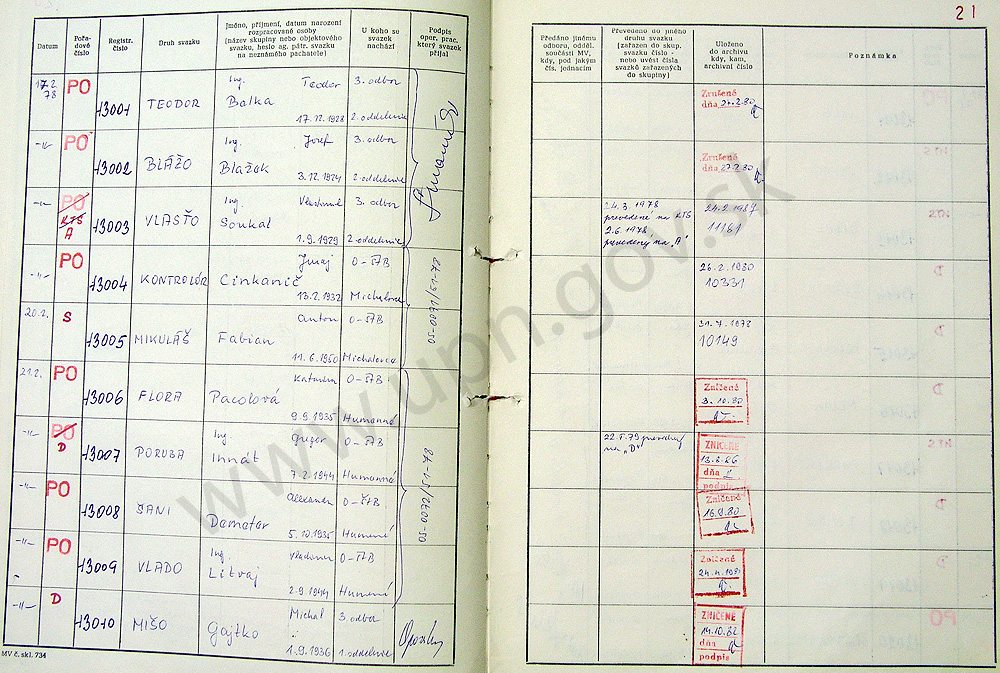 21
Datum
Pořa-
dové
číslo
Registr.
číslo
Druh svazku
Jméno, příjmení, datum narození
rozpracované osoby
(název skupiny nebo objektového
svazku, heslo ag. pátr. svazku
na neznámého pachatele)
U koho se
svazek
nachází
Podpis
oper. prac.
který svazek
přijal
Předáno jinému
odboru, odděl.
součásti MV,
kdy, pod jakým
čís. jednacím
Převedeno do jiného
druhu svazku
(zařazen do skup.
svazku číslo -
nebo uvést čísla
svazků zařazených
do skupiny)
Uloženo
do archivu
kdy, kam,
archivní číslo
Poznámka
17.2.
78
PO
13001
TEODOR
Ing. Teodor
Balka
17.12.1928
3. odbor
2. oddelenie
Zrušené
dňa 27.2.80
-„-
PO
13002
BLÁŽO
Ing. Jozef
Blažek
3.12.1924
3. odbor
2. oddelenie
Zrušené
dňa 27.2.80
-„-
PO
KTS
A
13003
VLASŤO
Ing. Vlastimil
Soukal
1.9.1929
3. odbor
2. oddelenie
24.3.1978
prevedené na KTS
2.6.1978
prevedený na „A"
24.2.1987
11161
-„-
PO
13004
KONTROLÓR
Juraj
Cinkanič
13.2.1932
O-ŠTB
Michalovce
05-0071/51-78
26.2.1980
10331
20.2.
S
13005
MIKULÁŠ
Anton
Fabian
11.6.1950
O-ŠTB
Michalovce
10149
21.2.
PO
13006
FLORA
Katarína
Pacolová
9.9.1935
O-ŠTB
Humenné
Zničené
3.10.80
-„-
PO
D
13007
PORUBA
Ing Gregor
Ihnát
7.2.1944
O-ŠTB
Humenné
05-0072/51-78
na „D"
ZNIČENÉ
dňa
podpis
-„-
PO
13008
ŠANI
Alexander
Demeter
5.10.1935
O-ŠTB
Humenné
Zničené
16.9.80
-„-
PO
13009
VLADO
Ing. Vladimír
Litvaj
2.9.1944
O-ŠTB
Humenné
Zničené
-„-
D
13010
MIŠO
Michal
Gajtko
1.9.1936
3. odbor
1. oddelenie
ZNIČENÉ
14.10.82
dňa
podpis
MV č. skl. 734
www.upn.gov.sk